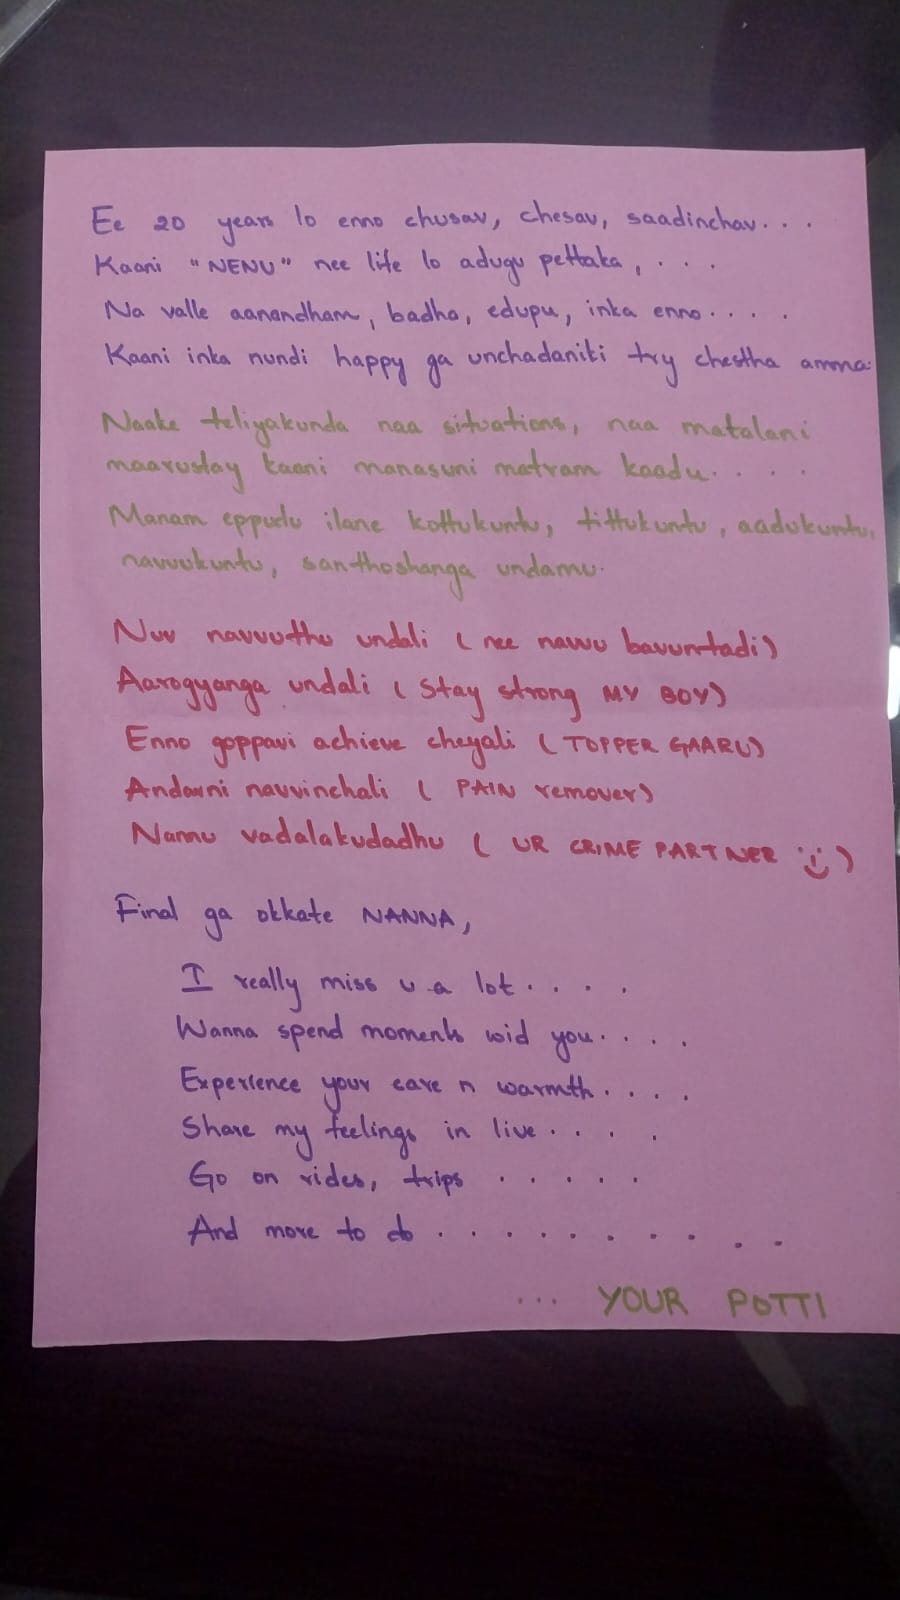 Ee 20 years lo enno chusav, chesav, saadinchav...
Kaani "NENU" nee life lo adugu pettaka, ...
Na valle aanandham, badha, edupu, inka enno....
Kaani inka nundi happy ga unchadaniki try chestha amma.
Naake teliyakunda naa situations, naa matalani
maarustay kaani manasuni matram kaadu....
Manam eppudu ilane kottukuntu, tittukuntu, aadukuntu,
navvukuntu, santhoshanga undamu.
Nuv navvuthu undali (nee navvu bavuntadi)
Aarogyanga undali (Stay strong MY BOY)
Enno goppavi achieve cheyali (TOPPER GAARU)
Andarni navvinchali (PAIN remover)
Nannu vadalakudadhu (UR CRIME PARTNER)
Final ga okkate NANNA,
I really miss u a lot....
Wanna spend moments wid you....
Experience your care n warmth....
Share my feelings in live....
Go on rides, trips .....
And more to do..........
... YOUR POTTI